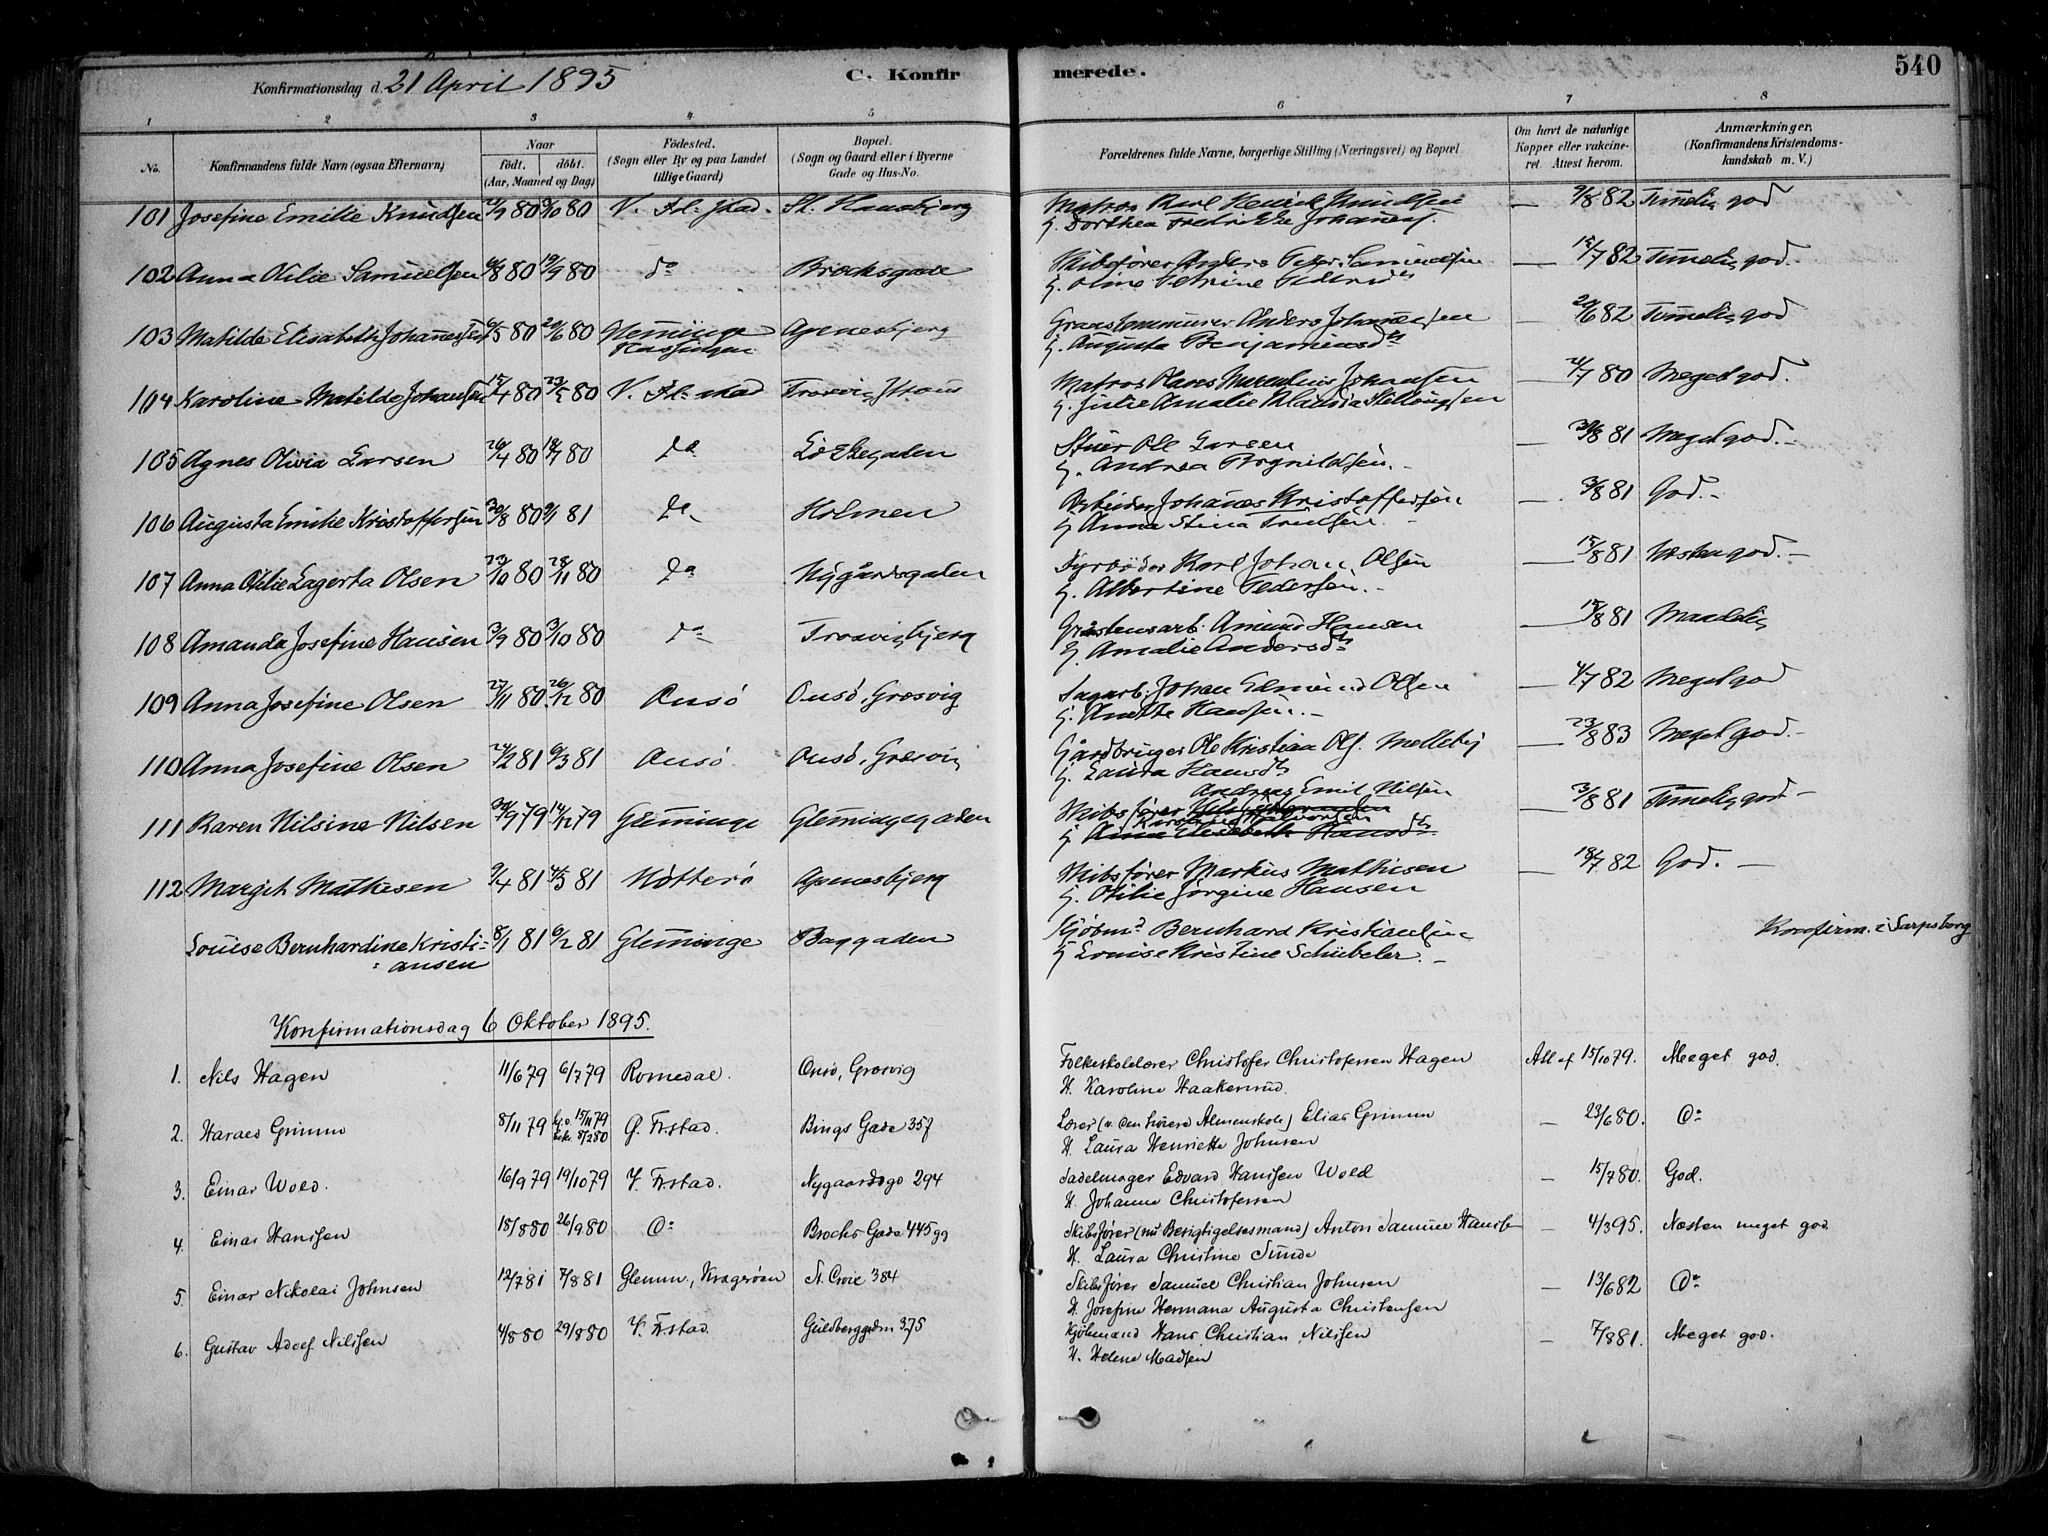 540
Konfirmationsdag d. 21 April 1895
C. Konfirmerede.
1 2 3 4 5 6 7 8
No. Konfirmandens fulde Navn (ogsaa Efternavn) Naar födt. döbt. (Aar, Maaned og Dag) Födested. (Sogn eller By og paa Landet tillige Gaard) Bopæl. (Sogn og Gaard eller i Byerne Gade og Hus-No. Forældrenes fulde Navne, borgerlige Stilling (Næringsvei) og Bopæl Om havt de naturlige Kopper eller vaccineret. Attest herom. Anmærkninger. (Konfirmandens Kristendomskundskab m. V.)
101 Josefine Emilie Knudsen 80 80 V. Fr.stad St. Hansbjerg Matros Karl Henrik Knudsen — 9/8 82 Temmelig god
H. Dorthea Fredrikke Johannes.
102 Anna Otilie Samuelsen 6/8 80 19/9 80 do Brochsgade Skibsfører Anders Peter Samuelsen — 15/7 82 Temmelig god.
H. Oline Petrine Pedersd.
103 Matilde Elisabeth Johannessen 6/5 80 20/6 80 Glemminge Apenesbjerg Anders Johannessen — 20/6 82 Temmelig god
H. Augusta Benjaminsd.
104 Karoline Matilde Johansen 15/4 80 23/5 80 V. Fr.stad Trosvig Matros Hans Johansen — 80 Meget god.
H. Julie Amalie Klausia
105 Agnes Olivia Larsen 26/4 80 18/7 80 do Ole Larsen — 81 Meget god.
H. Andrea
106 Augusta Emilie Kristoffersen 20/8 80 81 do Holmen Arbeider Johannes Kristoffersen — 3/8 81 God.
H. Anna Stina
107 Anna Otilie Lagerta Olsen 23/10 80 28/11 80 do Nygårdsgaden Fyrbøder Karl Johan Olsen — 15/8 81 Næsten god.
H. Albertine Pedersen.
108 Amanda Josefine Hansen 3/9 80 3/10 80 do Trosvigbjerg Gråstensarb. Amund Hansen — 15/8 81 Maadelig
H. Amalie Andersd.
109 Anna Josefine Olsen 27/11 80 26/12 80 Onsö Onsö, Græsvig Sagarb. Johan Edmund Olsen — 4/7 82 Meget god
H. Anette Hansen.
110 Anna Josefine Olsen 24/2 81 6/3 81 Onsö Onsö, Græsvig Gårdbruger Ole Kristian Ols. Mellebÿ — 23/8 83 Meget god.
H. Laura Hansd.
Andreas Emil Nilsen
111 Karen Nilsine Nilsen 79 14/12 79 Glemminge Glemmingegaden Skibsfører — 3/8 81 Temmelig god
H. Anna Elisabeth Hansd.
112 Margit Mathisen 9/4 81 81 Nötterö Apenesbjerg Skibsfører Markus Mathisen — 18/7 82 God.
H. Otilie Jörgine Hansen
Louise Bernhardine Kristiansen 8/1 81 6/2 81 Glemminge Baggaden Kjöbm. Bernhard Kristiansen Konfirm. i Sarpsborg
H. Louise Kristine Schübeler.
Konfirmationsdag 6 Oktober 1895.
1. Nils Hagen 11/6 79 6/7 79 Romedal. Onsö, Græsvig Folkeskolelærer Christofer Christofersen Hagen Att. af 15/10 79. Meget god.
H. Karoline Haakenrud.
2. Harald Grimm 8/11 79 hj.d. 15/11 79 bek. 8/2 80 Ø. Frstad. Bings Gade 357 Lærer (v. den höiere Almenskole) Elias Grimm — 23/6 80. Do
H. Laura Henriette Johnsen
3. Einar Wold. 16/9 79 19/10 79 V. Frstad. Nygaardsgd 294 Sadelmager Edvard Hanssen Wold — 15/7 80. God.
H. Johanne Christofersen
4. Einar Hanssen 15/8 80 26/9 80 Do Brochs Gade 445 gg Skibsfører (nu Besigtigelsesmand) Anton Samuel Hanssen — 4/3 95. Næsten meget god
H. Laura Christine Sunde
5. Einar Nikolai Johnsen 12/7 81 7/8 81 Glemm., Kragerøen St. Croix 384 Skibsfører Samuel Christian Johnsen — 13/6 82 Do
H. Josefine Hermana Augusta Christensen
6. Gustav Adolf Nilssen 4/8 80 29/8 80 V. Frstad. Guldberggaden 375 Kjöbmand Hans Christian Nilssen — 7/8 81. Meget god.
H. Helene Madsen